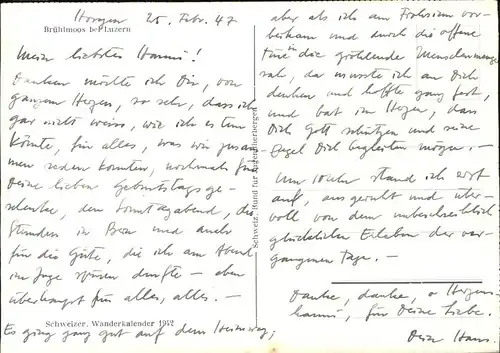 Horgen 25. Febr. 47
Brühlmoos bei Luzern
Mein liebstes Hanni!
Danken möchte ich Dir, von
ganzem Herzen, so sehr, dass ich
gar nicht weiss, wie ich es tun
könnte, für alles, was wir zusam-
men reden konnten, nochmals für
Deine lieben Geburtstagsge-
schenke, den Sonntagabend, die
Stunden in Bern und auch
für die Güte, die ich am Abend
im Zuge spüren durfte – aben
überhaupt für alles, alles. –
Schweizer. Wanderkalender 1942
Es ging ganz gut auf dem Heimweg;
Schweiz. Bund für Jugendherbergen
aber als ich am Frohsinn vor-
beikam und durch die offene
Türe in die gröhlende Menschenmenge
sah, da musste ich an Dich
denken und hoffte ganz fest,
und bat im Herzen, dass
Dich Gott schützen und seine
Engel Dich begleiten mögen. –
Um 10 Uhr stand ich erst
auf, ausgeruht und über-
voll von dem unbeschreiblich
glücklichen Erleben der ver-
gangenen Tage. –
Danke, danke, o Herzens-
hanni, für Deine Liebe.
Dein Hans.